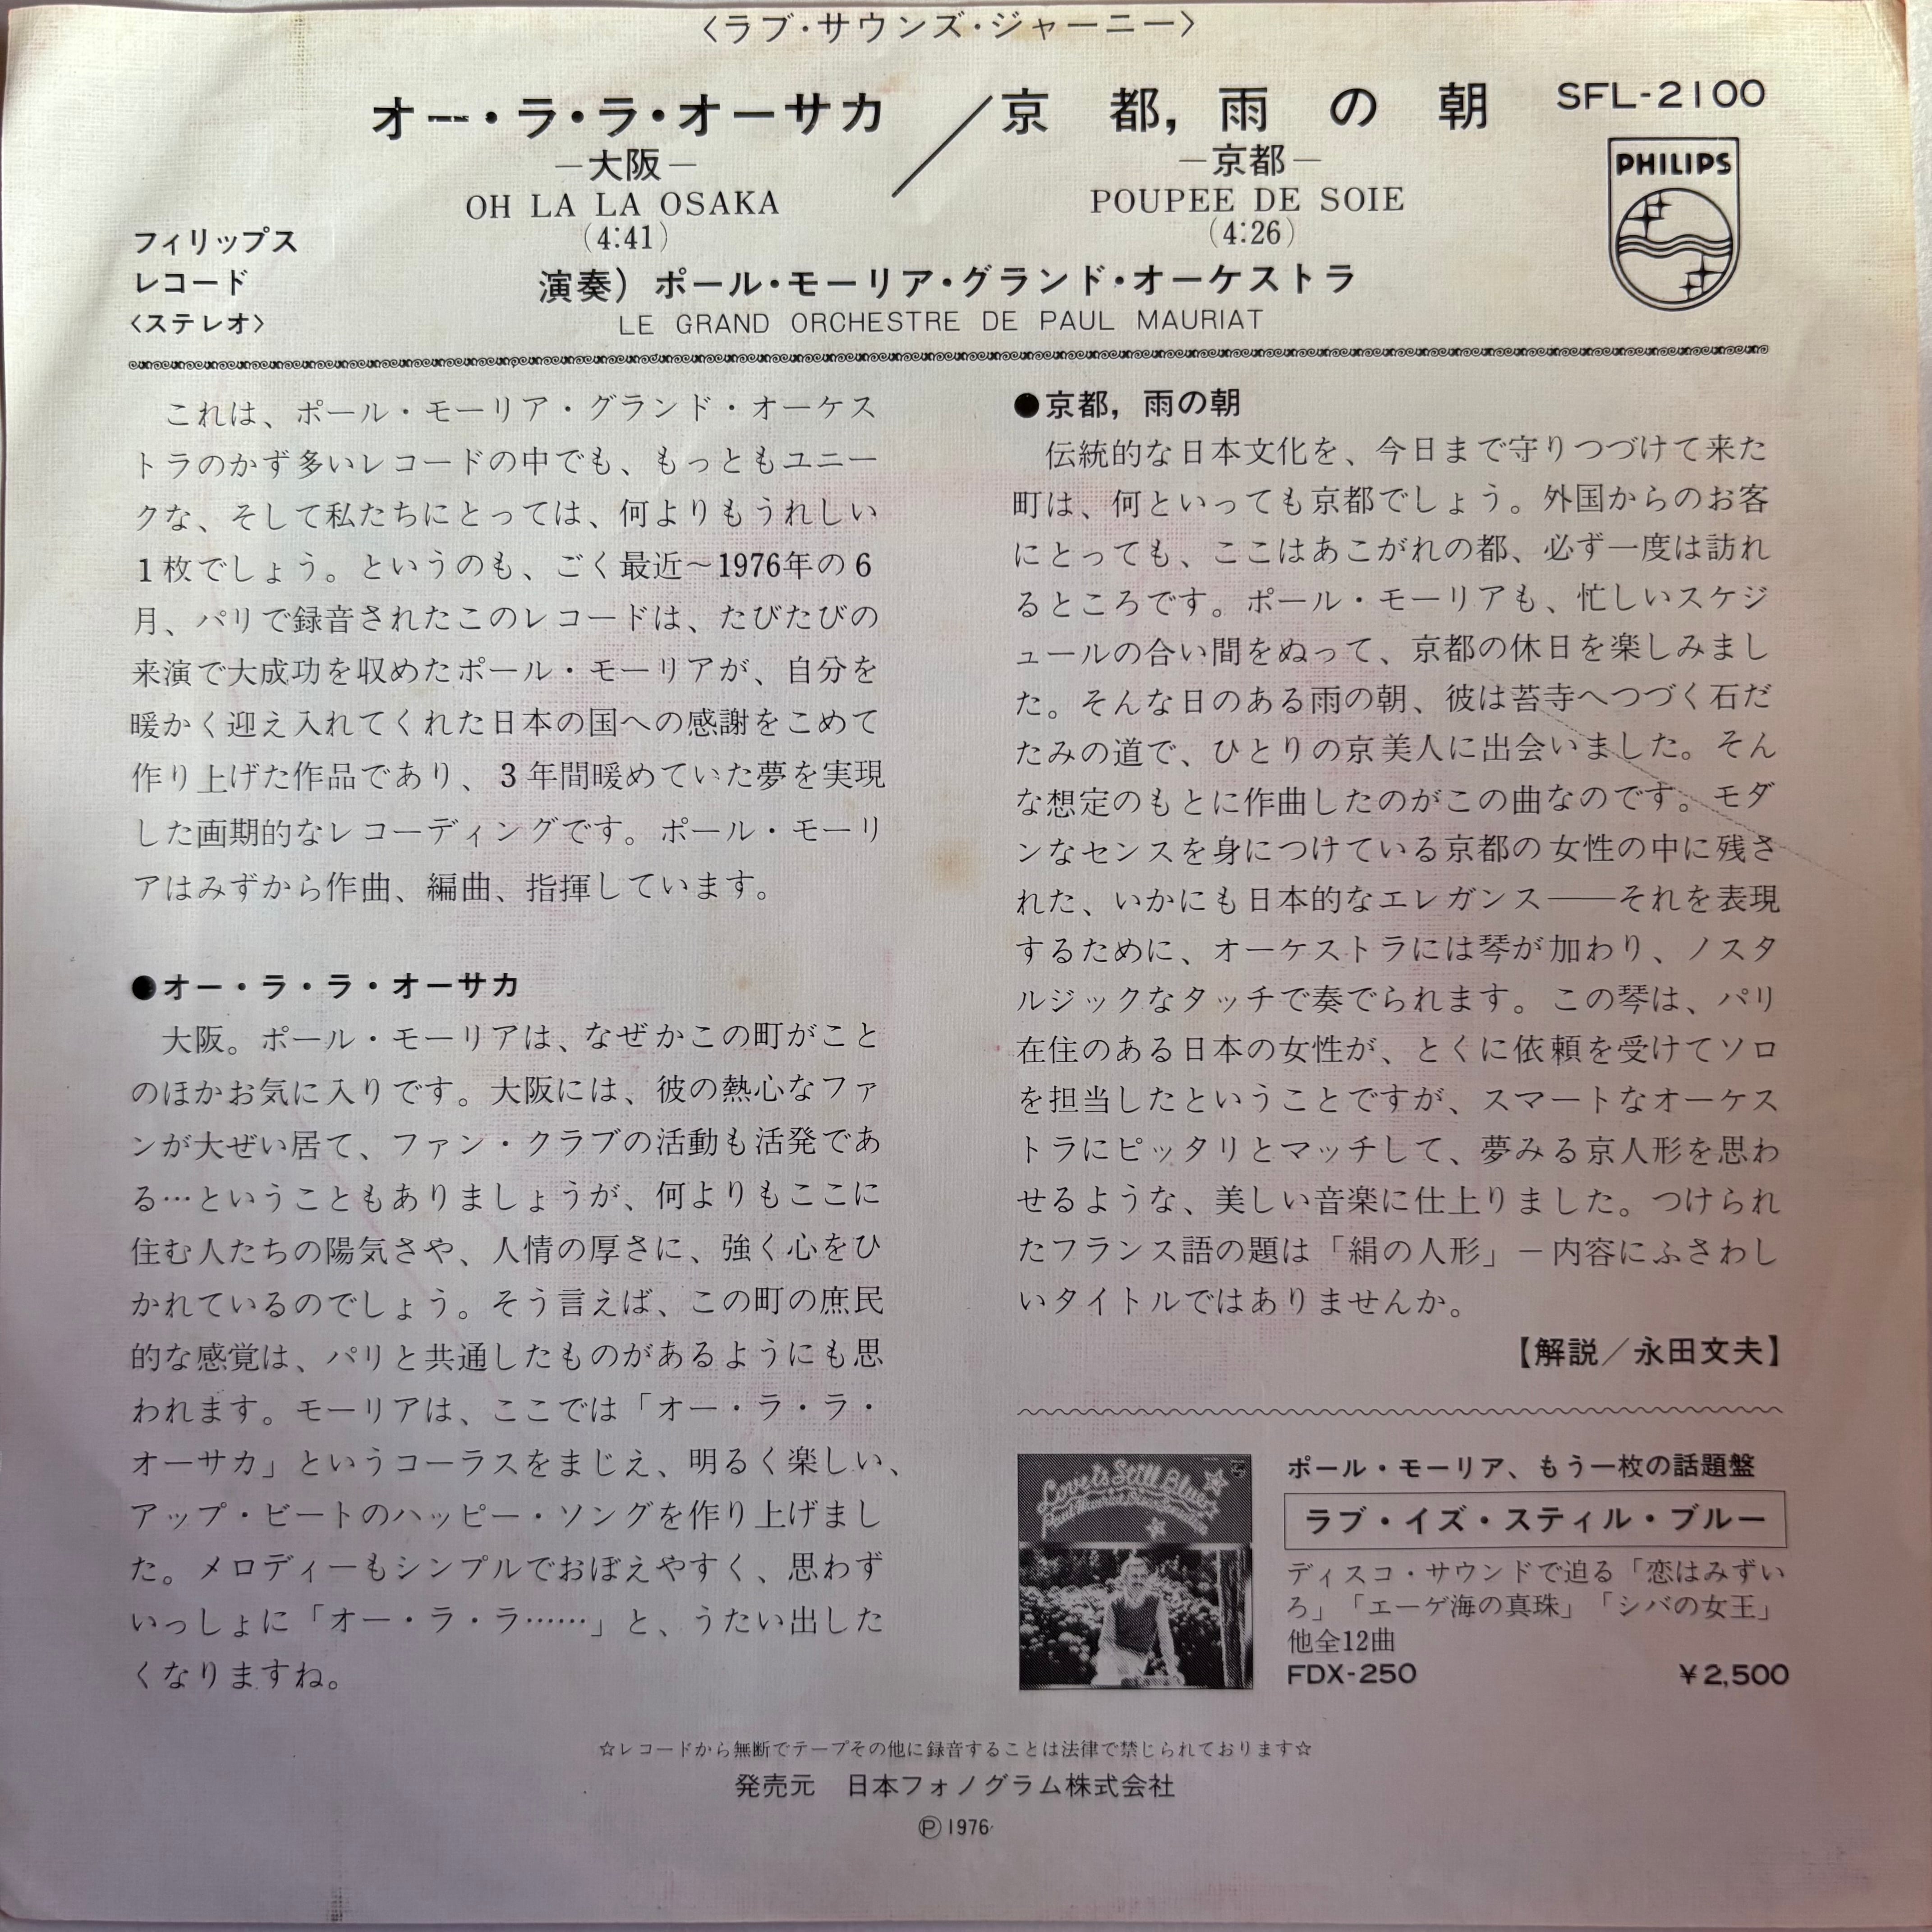 〈ラブ・サウンズ・ジャーニー〉
オー・ラ・ラ・オーサカ／京都，雨の朝
SFL-2100
―大阪―
―京都―
OH LA LA OSAKA
POUPEE DE SOIE
(4:41)
(4:26)
PHILIPS
フィリップス
レコード
〈ステレオ〉
演奏）ポール・モーリア・グランド・オーケストラ
LE GRAND ORCHESTRE DE PAUL MAURIAT
これは、ポール・モーリア・グランド・オーケス
トラのかず多いレコードの中でも、もっともユニー
クな、そして私たちにとっては、何よりもうれしい
1枚でしょう。というのも、ごく最近～1976年の6
月、パリで録音されたこのレコードは、たびたびの
来演で大成功を収めたポール・モーリアが、自分を
暖かく迎え入れてくれた日本の国への感謝をこめて
作り上げた作品であり、3年間暖めていた夢を実現
した画期的なレコーディングです。ポール・モーリ
アはみずから作曲、編曲、指揮しています。
●オー・ラ・ラ・オーサカ
大阪。ポール・モーリアは、なぜかこの町がこと
のほかお気に入りです。大阪には、彼の熱心なファ
ンが大ぜい居て、ファン・クラブの活動も活発であ
る…ということもありましょうが、何よりもここに
住む人たちの陽気さや、人情の厚さに、強く心をひ
かれているのでしょう。そう言えば、この町の庶民
的な感覚は、パリと共通したものがあるようにも思
われます。モーリアは、ここでは「オー・ラ・ラ・
オーサカ」というコーラスをまじえ、明るく楽しい、
アップ・ビートのハッピー・ソングを作り上げまし
た。メロディーもシンプルでおぼえやすく、思わず
いっしょに「オー・ラ・ラ……」と、うたい出した
くなりますね。
●京都，雨の朝
伝統的な日本文化を、今日まで守りつづけて来た
町は、何といっても京都でしょう。外国からのお客
にとっても、ここはあこがれの都、必ず一度は訪れ
るところです。ポール・モーリアも、忙しいスケジ
ュールの合い間をぬって、京都の休日を楽しみまし
た。そんな日のある雨の朝、彼は苔寺へつづく石だ
たみの道で、ひとりの京美人に出会いました。そん
な想定のもとに作曲したのがこの曲なのです。モダ
ンなセンスを身につけている京都の女性の中に残さ
れた、いかにも日本的なエレガンス――それを表現
するために、オーケストラには琴が加わり、ノスタ
ルジックなタッチで奏でられます。この琴は、パリ
在住のある日本の女性が、とくに依頼を受けてソロ
を担当したということですが、スマートなオーケス
トラにピッタリとマッチして、夢みる京人形を思わ
せるような、美しい音楽に仕上りました。つけられ
たフランス語の題は「絹の人形」－内容にふさわし
いタイトルではありませんか。
【解説／永田文夫】
Love is Still Blue
ポール・モーリア、もう一枚の話題盤
ラブ・イズ・スティル・ブルー
ディスコ・サウンドで迫る「恋はみずい
ろ」「エーゲ海の真珠」「シバの女王」
他全12曲
FDX-250 ￥2,500
☆レコードから無断でテープその他に録音することは法律で禁じられております☆
発売元 日本フォノグラム株式会社
Ⓟ1976